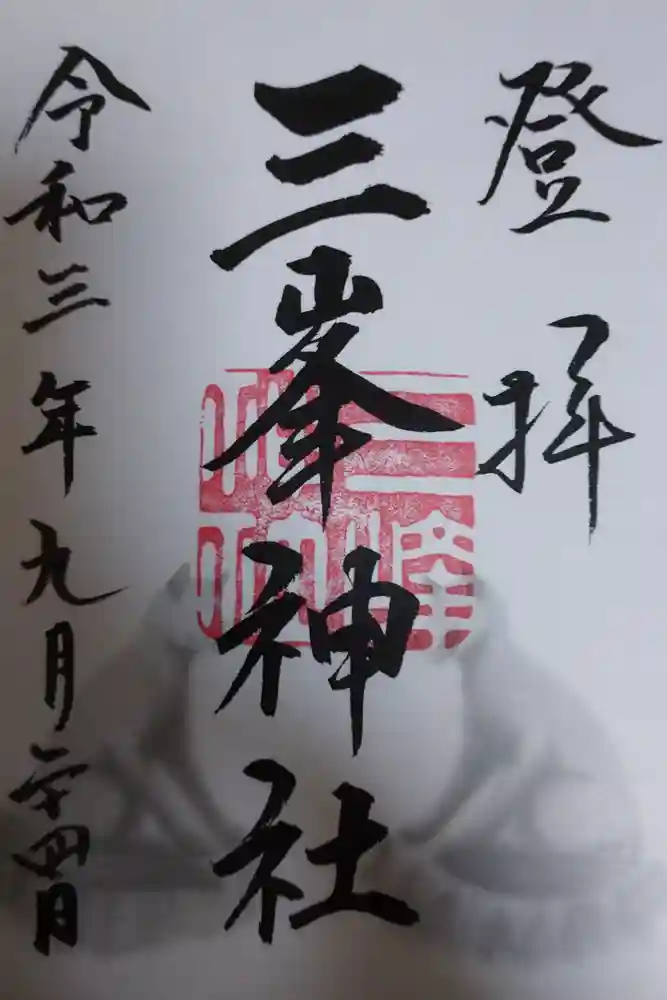 登拝
三峯神社
令和三年九月二十四日
三峯神社